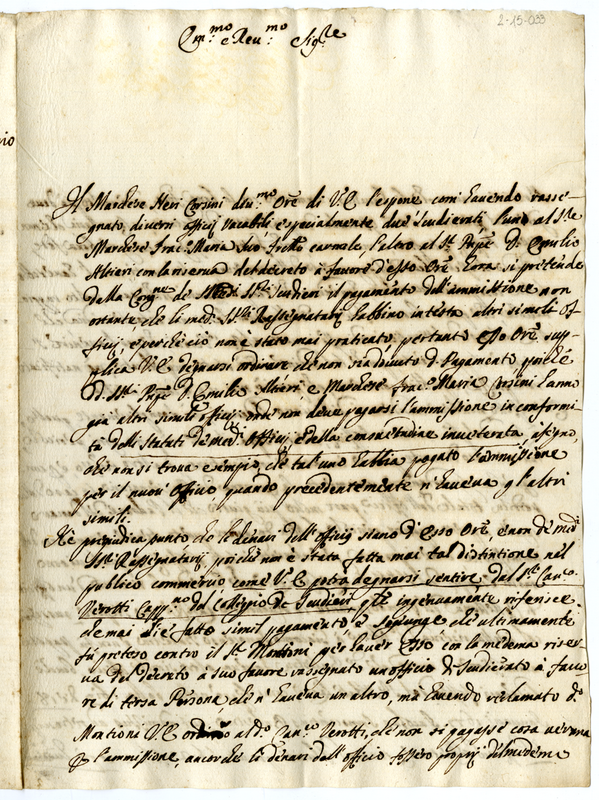 2-15-033
Em:mo e Reu:mo Sig:re
Il Marchese Neri Corsini deu:mo Ore di V.E. l'espone com' hauendo rasse-
gnato diuersi officij Vacabili, e specialmente due Scudierati, l'uno al S.re
Marchese Franc.o Maria suo Frello carnale, l'altro al S.r Pnpe D. Emilio
Altieri con la riserua del decreto à fauore d'esso Ore. Hora si pretende
dalla Cong.ne de SS.ri Scudieri il pagamento dell'ammissione non
ostante che li med. SS.ri Rassegnatarij habbino in testa altri simili of-
ficij, e perche ciò non è stato mai praticato, pertanto esso Ore sup-
plica V.E. degnarsi ordinare che non sia douuto d.o Pagamento, poiche
d.i SS.ri Pnpe D. Emilio Altieri, e Marchese Franc.o Maria Corsini hanno
già altri simili officij onde non deue pagarsi l'ammissione in conformi-
tà delli statuti de med.i Officij, e della consuetudine inueterata, à segno,
che non si troua esempio, che tal'uno habbia pagato l'ammissione
per il nuouo Officio, quando precedentemente n'haueua gl'altri
simili.
Ne pregiudica punto che le denari dell'officij siano d'esso Ore, e non de med.i
SS.ri Rassegnatarij, poiche non è stata fatta mai tal distintione nel
publico commercio come V.E. potrà degnarsi sentire dal S.r Can.co
Verotti Capp.no del Collegio de Scudieri, che ingenuamente riferisce,
che mai si è fatto simil pagamento, e soggiunge che ultimamente
fù preteso contro il S.r Montioni per hauer esso con la medema riser-
ua del decreto à suo fauore rassegnato un officio di Scudierato à fauo-
re di terza Persona che n'haueua un altro, mà hauendo reclamato d.o
Montioni V.E. ordinò al d.o Can.co Verotti, che non si pagasse cosa ueruna
p l'ammissione, ancorche li denari dell'officio fossero proprij del medemo